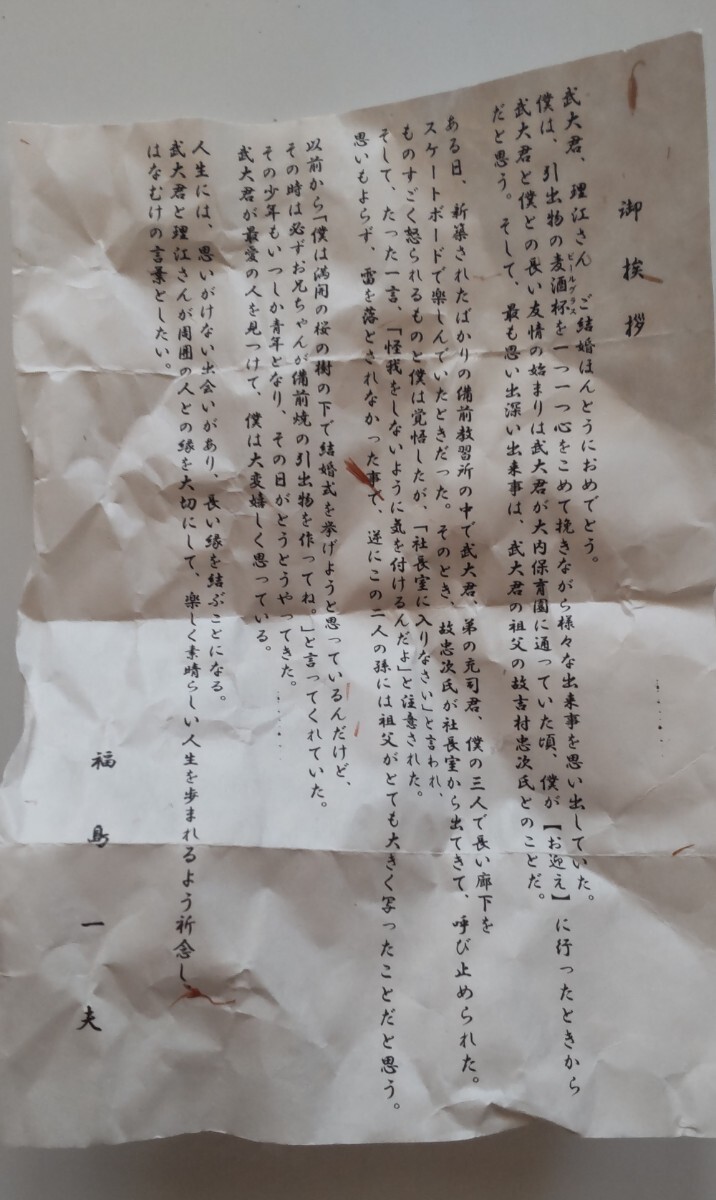 御挨拶
武大君、理江さん ご結婚ほんとうにおめでとう。
僕は、引出物の麦酒杯を一つ一つ心をこめて挽きながら様々な出来事を思い出していた。
ビールグラス
武大君と僕との長い友情の始まりは武大君が大内保育園に通っていた頃、僕が【お迎え】に行ったときから
だと思う。そして、最も思い出深い出来事は、武大君の祖父の故吉村忠次氏とのことだ。
ある日、新築されたばかりの備前教習所の中で武大君、弟の充司君、僕の三人で長い廊下を
スケートボードで楽しんでいたときだった。そのとき、故忠次氏が社長室から出てきて、呼び止められた。
ものすごく怒られるものと僕は覚悟したが、「社長室に入りなさい」と言われ、
そして、たった一言、「怪我をしないように気を付けるんだよ」と注意された。
思いもよらず、雷を落とされなかった事で、逆にこの二人の孫には祖父がとても大きく写ったことだと思う。
以前から「僕は満開の桜の樹の下で結婚式を挙げようと思っているんだけど、
その時は必ずお兄ちゃんが備前焼の引出物を作ってね。」と言ってくれていた。
その少年もいつしか青年となり、その日がとうとうやってきた。
武大君が最愛の人を見つけて、僕は大変嬉しく思っている。
人生には、思いがけない出会いがあり、長い縁を結ぶことになる。
武大君と理江さんが周囲の人との縁を大切にして、楽しく素晴らしい人生を歩まれるよう祈念し、
はなむけの言葉としたい。
福島一夫